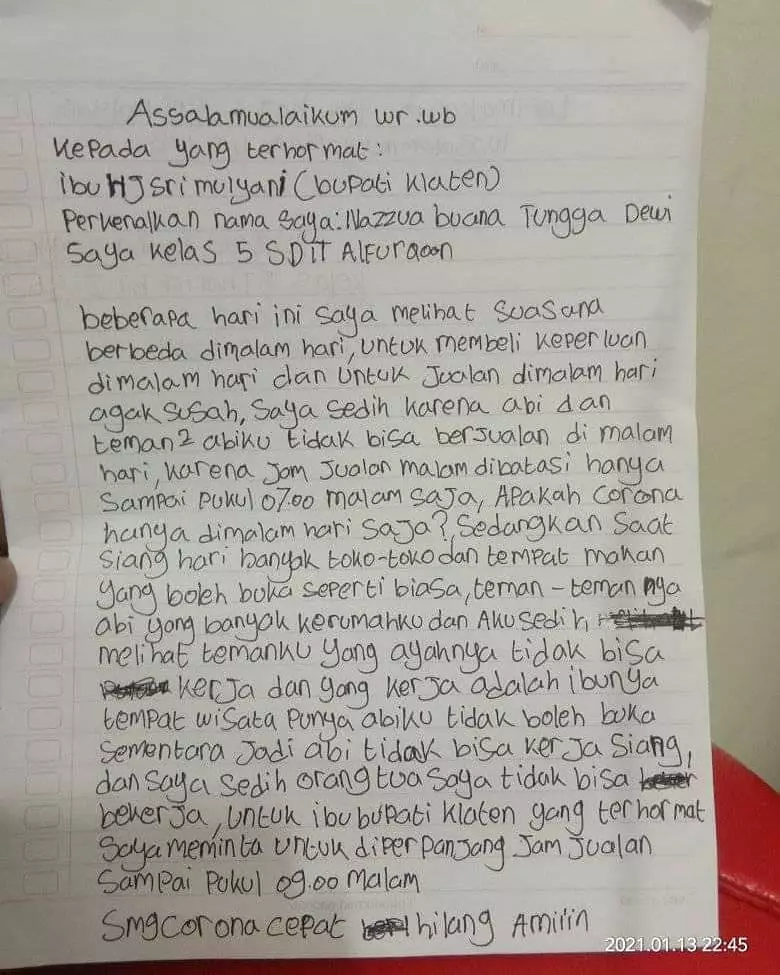 Assalamualaikum wr.wb
Kepada yang terhormat:
ibu HJ sri mulyani (bupati Klaten)
Perkenalkan nama Saya: Nazzua buana Tungga Dewi
Saya kelas 5 SDIT Alfuraoon
beberapa hari ini Saya melihat Suasana
berbeda dimalam hari, untuk membeli keperluan
dimalam hari dan untuk Jualan dimalam hari
agak susah, Saya sedih karena abi dan
teman2 abiku tidak bisa berjualan di malam
hari, karena Jam Jualan malam dibatasi hanya
Sampai pukul 07.00 malam saja, Apakah Corona
hanya dimalam hari saja?, Sedangkan Saat
Siang hari banyak toko-toko dan tempat makan
yang boleh buka seperti biasa, teman-temannya
abi yang banyak kerumahku dan Aku sedih,
melihat temanku yang ayahnya tidak bisa
kerja dan yang kerja adalah ibunya
tempat wisata punya abiku tidak boleh buka
Sementara Jadi abi tidak bisa kerja siang,
dan saya sedih orang tua saya tidak bisa
bekerja, untuk ibu bupati klaten yang terhormat
Saya meminta untuk diperpanjang Jam Jualan
Sampai pukul 09.00 Malam
Smg corona cepat hilang Amiiin
2021.01.13 22:45